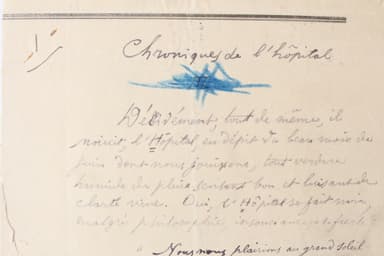 Chroniques de l'hôpital
Décidément, tout de même, il
noircit, l'Hôpital, en dépit du beau mois de
juin dont nous jouissons, tout verdure
humide de pluie, sentant bon et luisant de
clarté vive. Oui, l'Hôpital se fait noir,
malgré philosophie
" Nous nous plairions au grand soleil